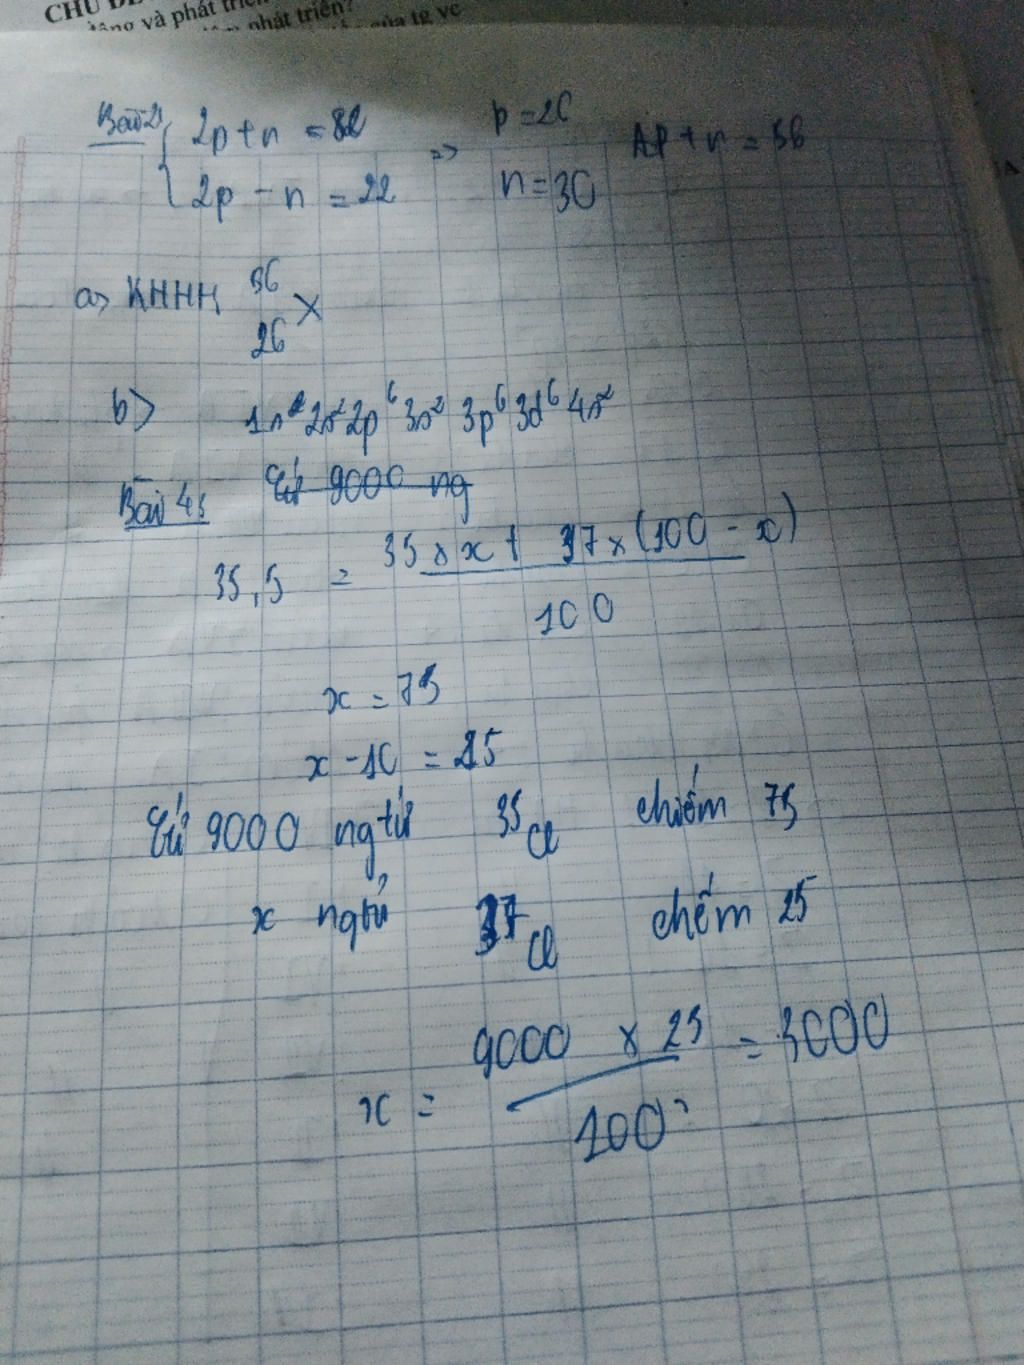 CHỦ ĐỀ
động và phát triển
phát triển?
của tg vc
Bài 2: 2p + n = 82 => p = 26 A p + n = 56
2p - n = 22 n = 30
a> KHHH 56
26 X
b> 1s² 2s² 2p⁶ 3s² 3p⁶ 3d⁶ 4s²
Bài 4: Cứ 9000 ng
35,5 = 35 × x + 37 × (100 - x)
100
x = 75
x - 10 = 25
Cứ 9000 ng tử 35 Cl chiếm 75
x ngtử 37 Cl chếm 25
x = 9000 × 25 = 3000
100